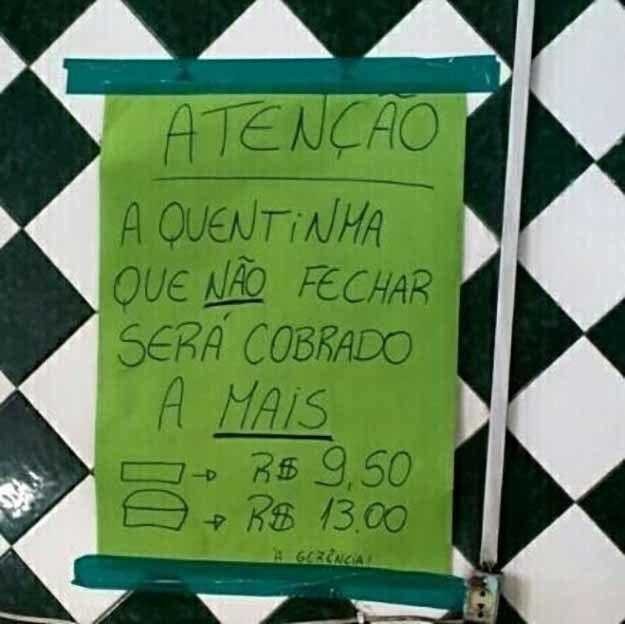 ATENÇÃO
A QUENTINHA
QUE NÃO FECHAR
SERÁ COBRADO
A MAIS
→ R$ 9,50
→ R$ 13.00
A GERÊNCIA!